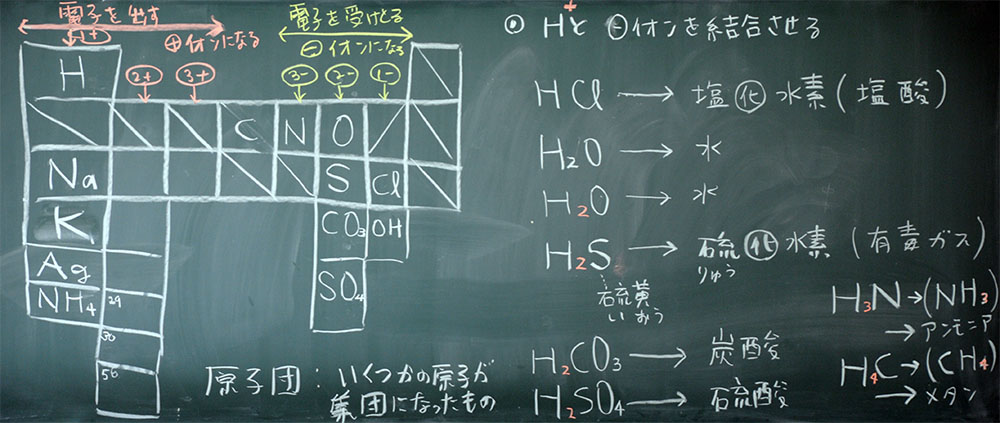 電子を出す
⊕イオンになる
電子を受けとる
⊖イオンになる
1+
2+ 3+ 3- 2- 1-
H
C N O
Na S Cl
K CO₃ OH
Ag SO₄
NH₄ 29
30
56
原子団：いくつかの原子が
集団になったもの
◎ H⁺と ⊖イオンを結合させる
HCl → 塩化水素(塩酸)
H₂O → 水
H₂O → 水
H₂S → 硫化水素(有毒ガス)
りゅう
硫黄
いおう
H₂CO₃ → 炭酸
H₂SO₄ →硫酸
H₃N→(NH₃)
→ アンモニア
H₄C→(CH₄)
→ メタン